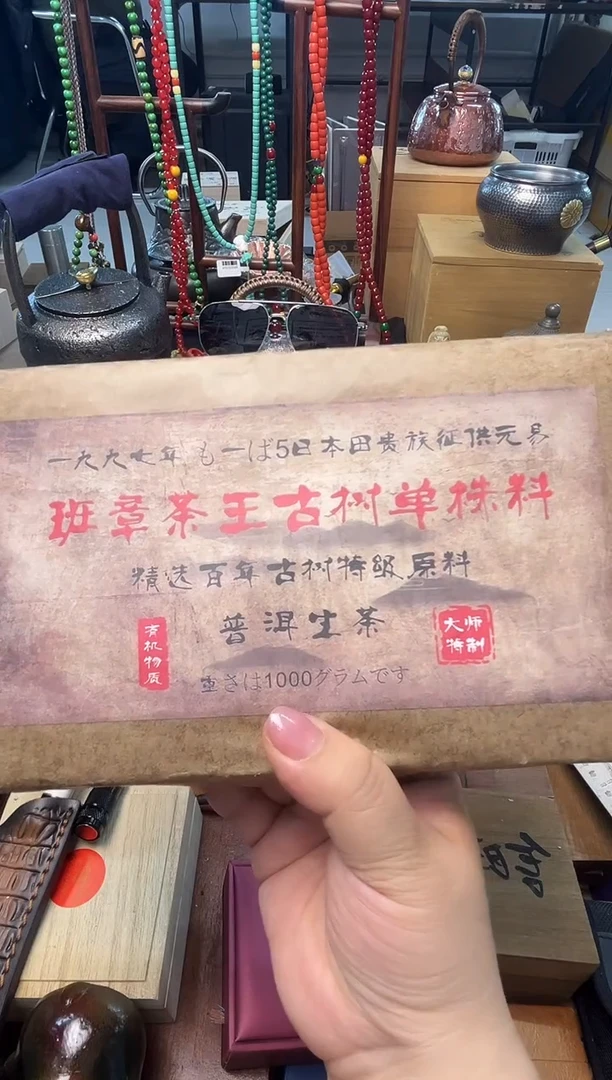 一九九七年 も一ば5日本田贵族征供元易
班章茶王古树单株料
精选百年古树特级原料
普洱生茶
有机物质
大师特制
重さは1000グラムです